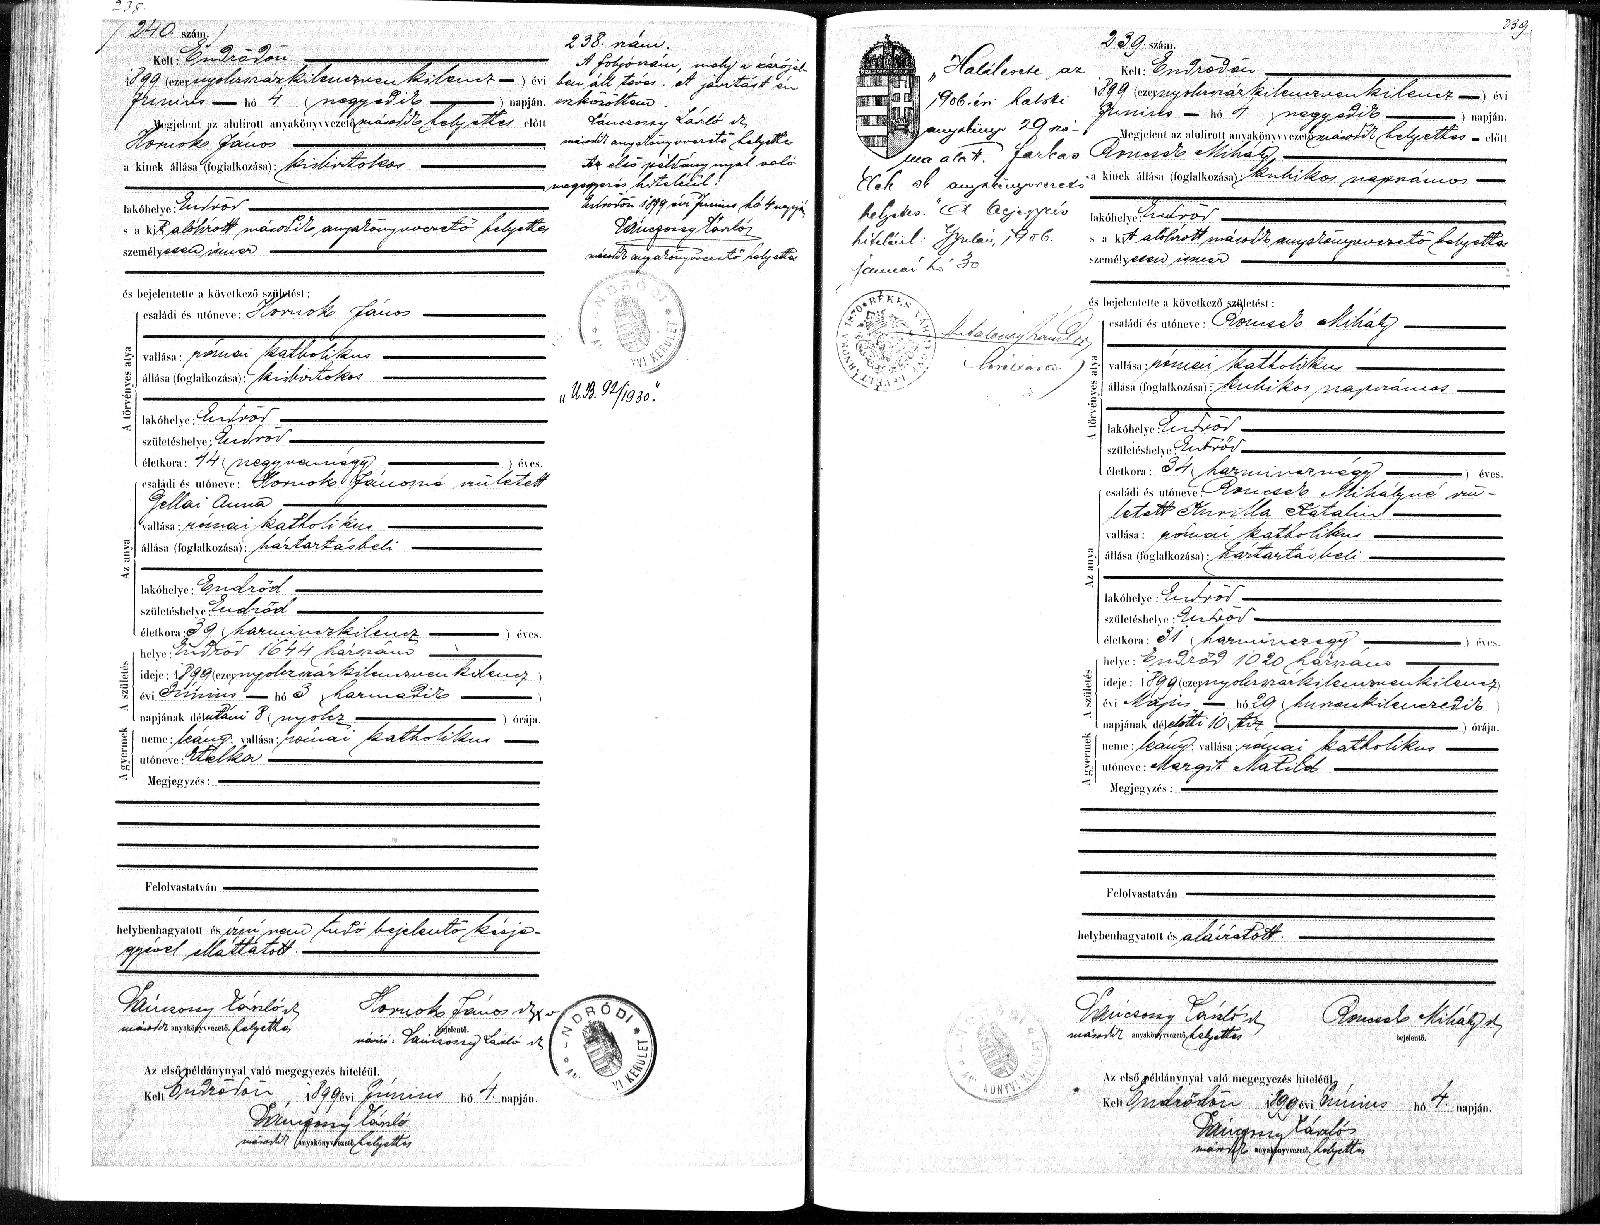 238.
(240. szám.)
Kelt: Endrődön
1899 (ezernyolczszázkilenczvenkilencz) évi
Június hó 4 (negyedik) napján.
Megjelent az alulirott anyakönyvvezető második helyettes előtt
Hornok János
a kinek állása (foglalkozása): kisbirtokos
lakóhelye: Endrőd
s a kit alólirott második anyakönyvvezető helyettes
személyesen ismer
és bejelentette a következő születést:
A törvényes atya
családi és utóneve: Hornok János
vallása: római katholikus
állása (foglalkozása): kisbirtokos
lakóhelye: Endrőd
születéshelye: Endrőd
életkora: 44 (negyvennégy) éves.
Az anya
családi és utóneve: Hornok Jánosné született
Gellai Anna
vallása: római katholikus
állása (foglalkozása): háztartásbeli
lakóhelye: Endrőd
születéshelye: Endrőd
életkora: 39 (harminczkilencz) éves.
A születés
helye: Endrőd 1644 házszám
ideje: 1899 (ezernyolczszázkilenczvenkilencz)
évi Június hó 3 (harmadik)
napjának délutáni 8 (nyolcz) órája.
A gyermek
neme: leány; vallása: római katholikus
utóneve: Etelka
Megjegyzés:
Felolvastatván
helybenhagyatott és írni nem tudó bejelentő kézje-
gyével elláttatott.
Lánczossy László sk
második anyakönyvvezető helyettes
Hornok János sk x
bejelentő.
Lánczossy László sk
Az első példánynyal való megegyezés hiteléül.
Kelt Endrődön, 1899 évi Június hó 4. napján.
Lánczossy László
második anyakönyvvezető helyettes
238. szám.
A folyószám, mely a zárójel-
ben állt téves. A javítást én
eszközöltem.
Lánczossy László sk
második anyakönyvvezető helyettes
Az első példánynyal való
megegyezés hiteléül!
Endrődön 1899 évi Június hó 4 napján
Lánczossy László
második anyakönyvvezető helyettes
NDRŐDI
VI KERÜLET
„U.B. 92/1930."
NDRŐDI
VI KERÜLET
239.
„Halálesete az
1906. évi halotti
anyakönyv 29 szá-
ma alatt. Farkas
anyakönyvvezető
helyettes." A bejegyzés
hiteléül: Gyulán, 1906.
január hó 30
1870 BÉKÉS VÁRMEGYE LEVÉLTÁRNOKA
239. szám.
Kelt: Endrődön
1899 (ezernyolczszázkilenczvenkilencz) évi
Június hó 4 (negyedik) napján.
Megjelent az alulirott anyakönyvvezető második helyettes előtt
Roncsek Mihály
a kinek állása (foglalkozása): kubikos napszámos
lakóhelye: Endrőd
s a kit alólirott második anyakönyvvezető helyettes
személyesen ismer
és bejelentette a következő születést:
A törvényes atya
családi és utóneve: Roncsek Mihály
vallása: római katholikus
állása (foglalkozása): kubikos napszámos
lakóhelye: Endrőd
születéshelye: Endrőd
életkora: 34 (harmincznégy) éves.
Az anya
családi és utóneve: Roncsek Mihályné szü-
letett Kurilla Katalin
vallása: római katholikus
állása (foglalkozása): háztartásbeli
lakóhelye: Endrőd
születéshelye: Endrőd
életkora: 31 (harminczegy) éves.
A születés
helye: Endrőd 1020 házszám
ideje: 1899 (ezernyolczszázkilenczvenkilencz)
évi Május hó 29 (huszonkilenczedik)
napjának délelőtti 10 (tíz) órája.
A gyermek
neme: leány; vallása: római katholikus
utóneve: Margit Matild
Megjegyzés:
Felolvastatván
helybenhagyatott és aláíratott.
Lánczossy László sk
második anyakönyvvezető, helyettes
Roncsek Mihály sk
bejelentő.
Az első példánynyal való megegyezés hiteléül.
Kelt Endrődön 1899 évi Június hó 4. napján.
Lánczossy László
második anyakönyvvezető, helyettes